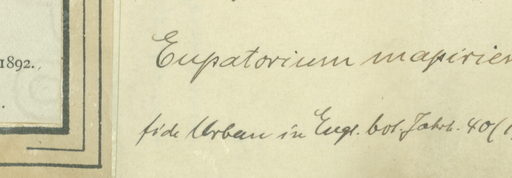 1892.
Eupatorium mapirien
fide Urban in Engl. bot. Jahrb. 40 (1